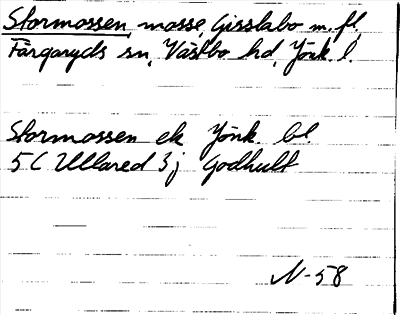 Stormossen, mosse, Gisslabo m. fl.
Färgaryds sn, Västbo hd, Jönk. l.
Stormossen ek Jönk. bl.
5C Ullared 3j Godhult
N-58